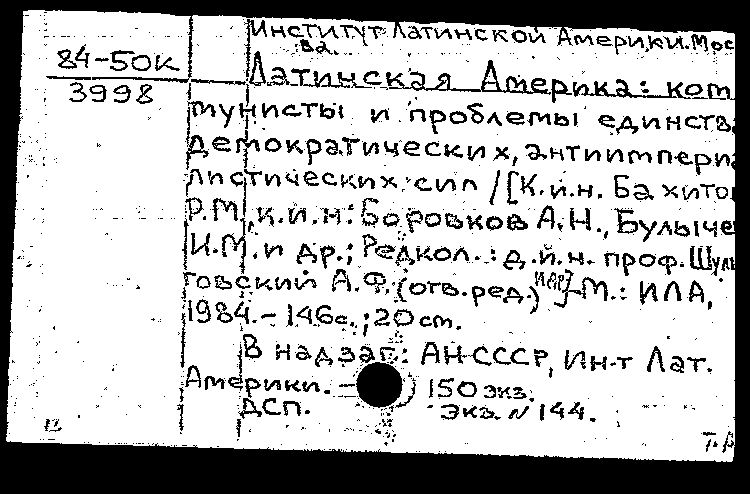 Институт Латинской Америки. Мос
ва.
84-50К
3998
Латинская Америка: ком
мунисты и проблемы единства
демократических, антиимпериа
листических сил / [К.и.н. Бахитов
Р.М., к.и.н: Боровков А.Н., Булыче
И.М. и др.; Редкол.: д.и.н. проф. Шуль
говский А.Ф. (отв.ред.) и др.]-М.: ИЛА,
1984.- 146с.; 20 cm.
В надзаг: АН СССР, Ин-т Лат.
Америки. - 150 экз.
ДСП. Экз. N 144.